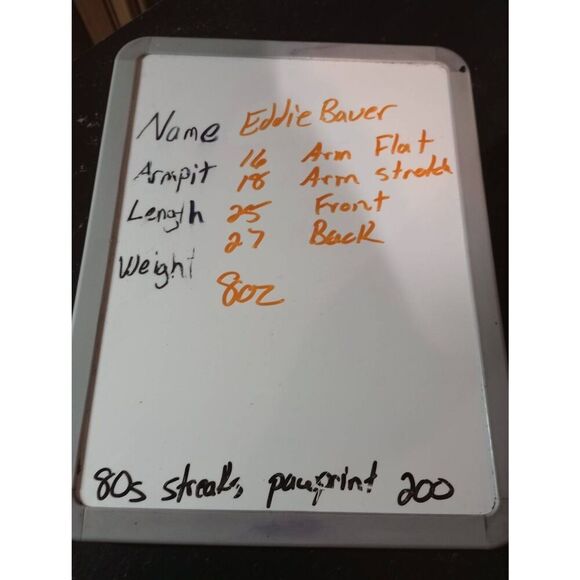 Name Eddie Bauer
Armpit 16 Arm Flat
18 Arm stretch
Length 25 Front
27 Back
Weight
8oz
80s streaks, pawprint 200